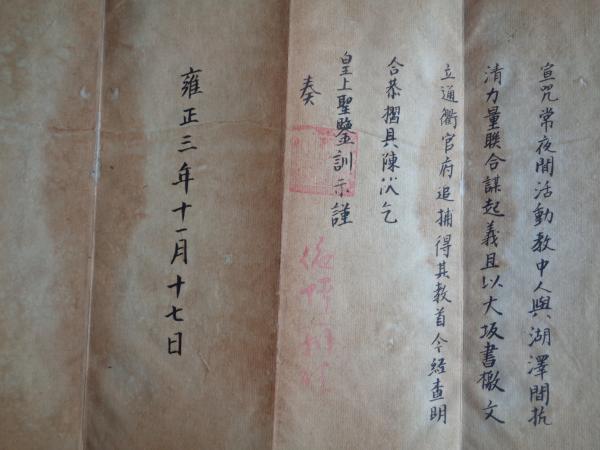 宣咒常夜間活動教中人與湖澤間抗
清力量聯合謀起義且以大坂書檄文
立通衢官府追捕得其教首今經查明
合恭摺具陳伏乞
皇上聖鑒訓示謹
奏
雍正三年十一月十七日